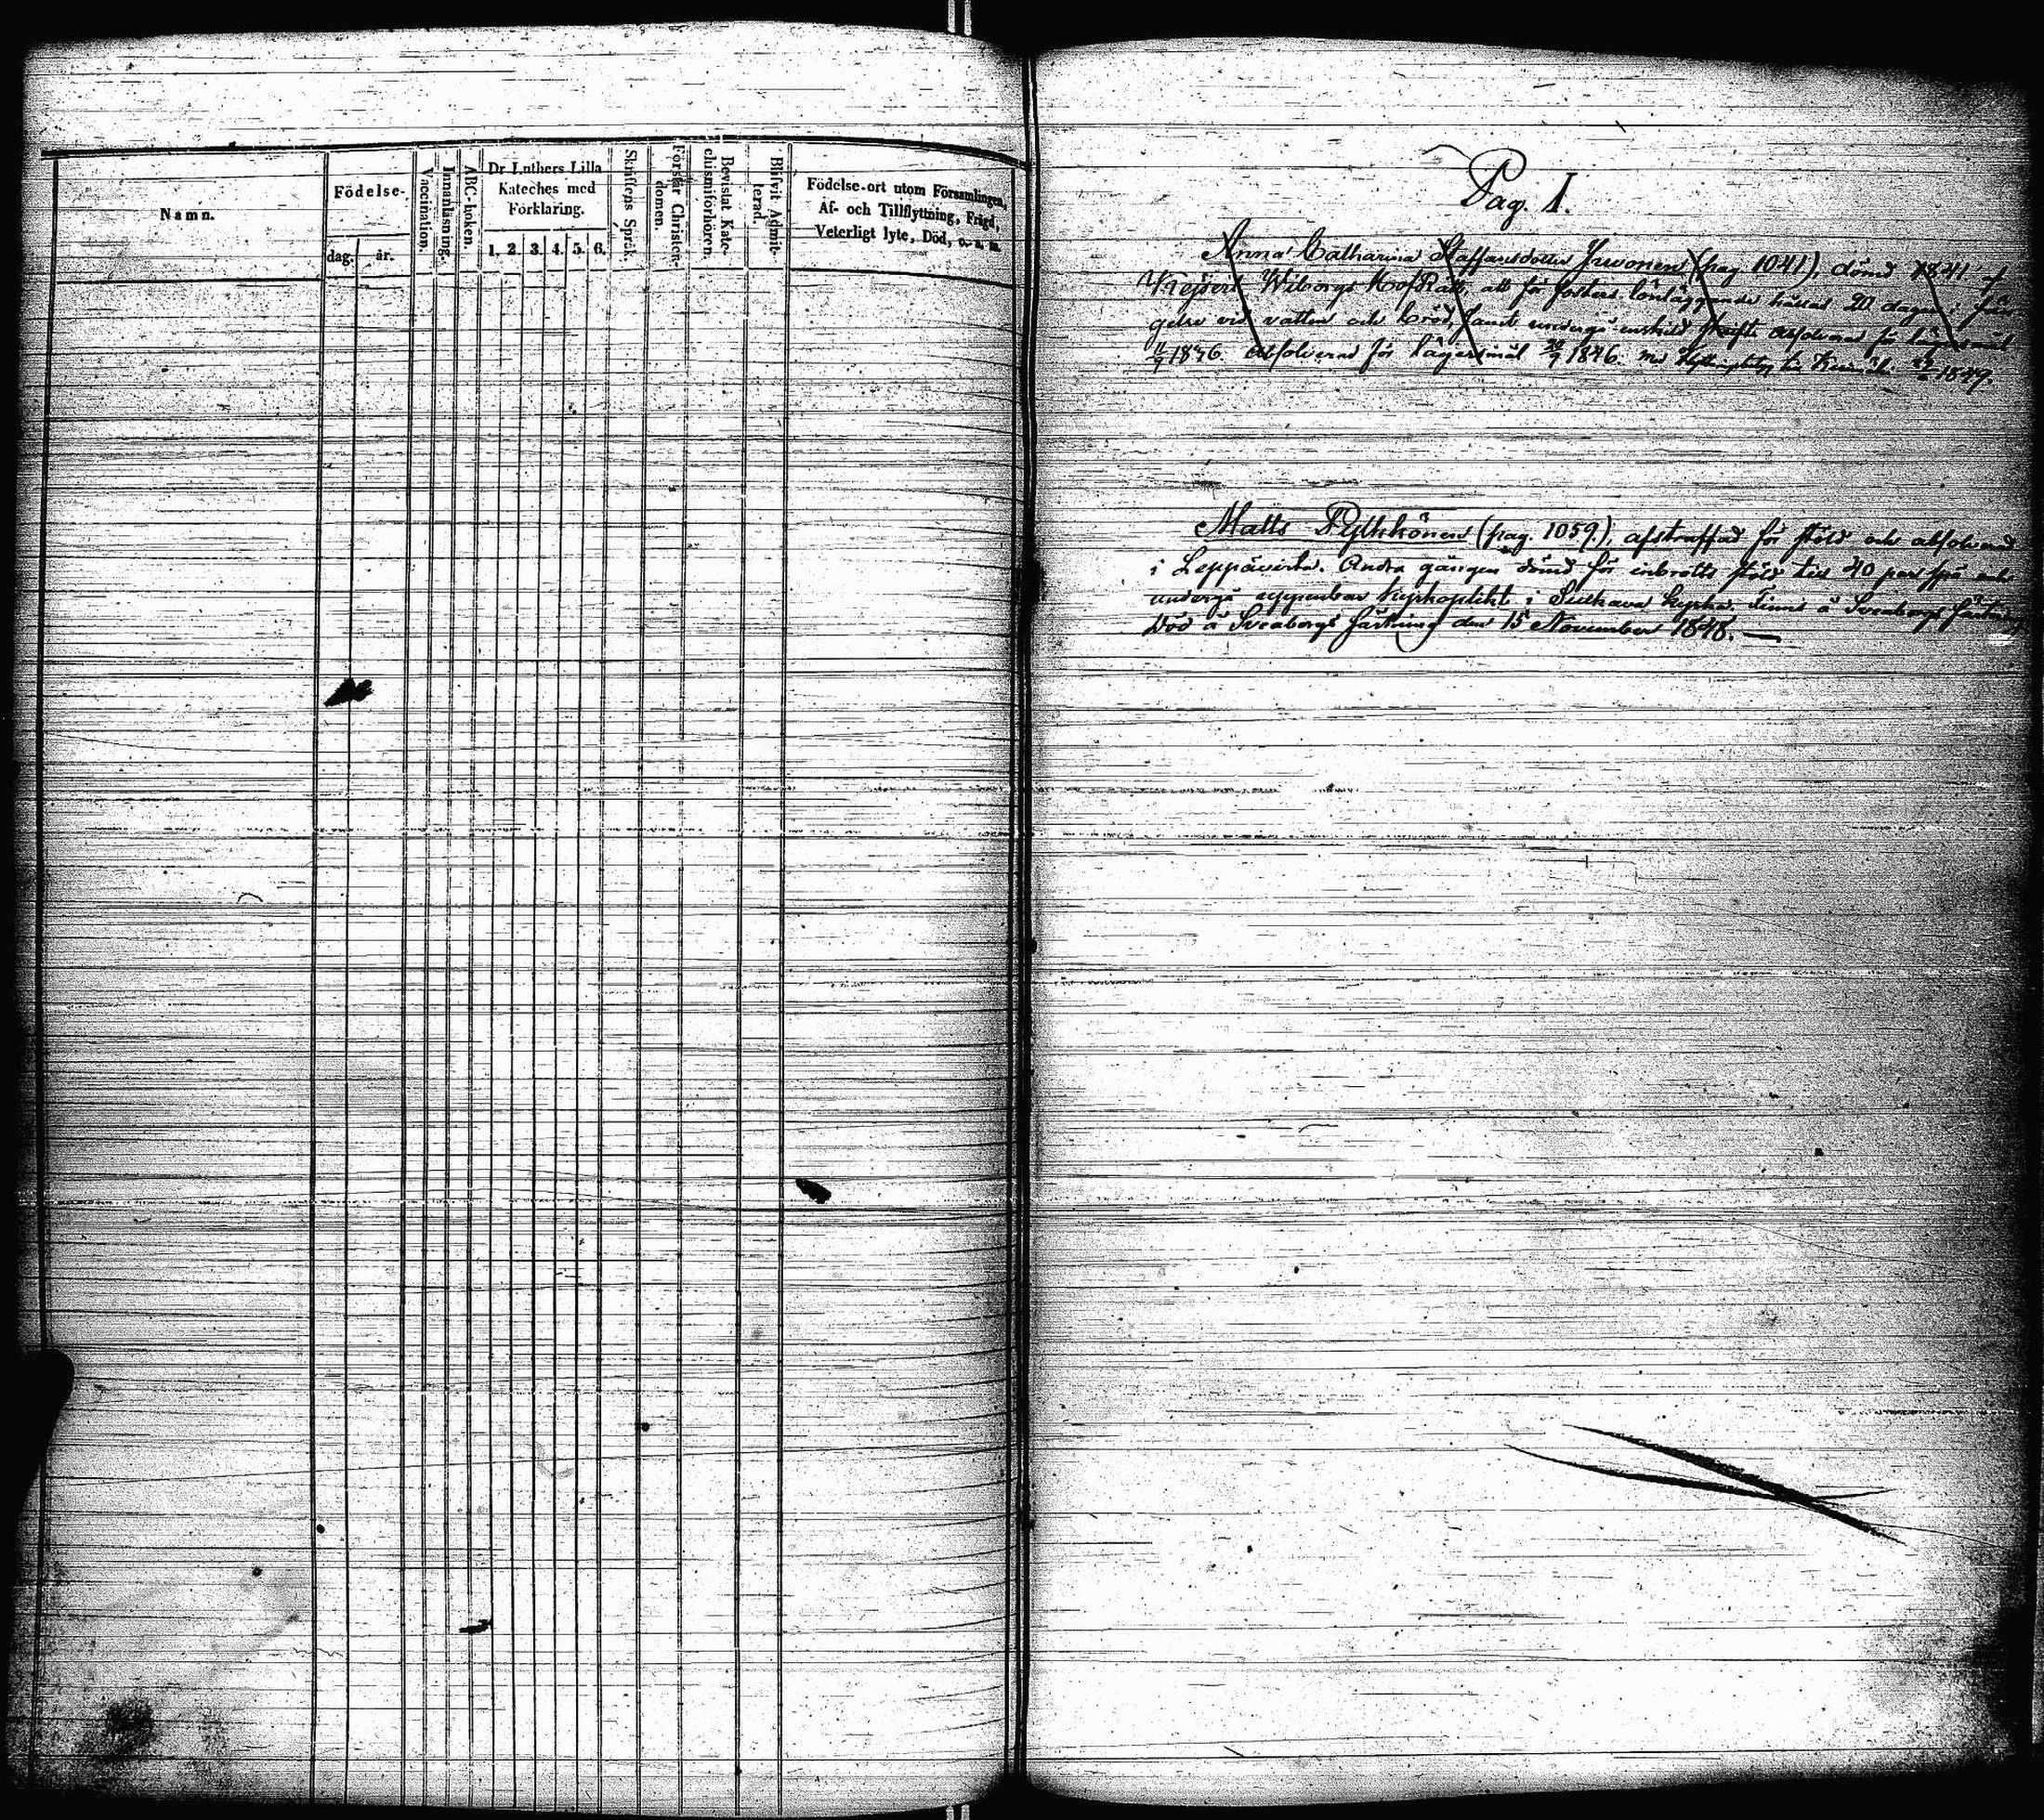 Namn.
Födelse-
dag.
år.
Vaccination.
Innanläsning.
ABC-boken.
Dr Luthers Lilla
Kateches med
Förklaring.
1. 2. 3. 4. 5. 6.
Skriftens Språk.
Förstår Christen-
domen.
Bevistat Kate-
chismiförhören.
Blifvit Admit-
terad.
Födelse-ort utom Församlingen,
Af- och Tillflyttning, Frägd,
Veterligt lyte, Död, o. s. m.
Pag. 1.
Anna Catharina Staffansdotter Juvonen (pag. 1041), dömd 1841 af
Kejserl. Wiborgs HofRätt, att för fosters lönläggande hållas 20 dagar i fän-
gelse vid vatten och bröd, samt undergå enskild skrift. Absolverad för lägersmål
11/9 1846. Absolverad för lägersmål 20/9 1846. Med till 1849.
Matts Pylkkönen (pag. 1059.), afstraffad för stöld och absolverad
i Leppävirta. Andra gången dömd för inbrotts stöld till 40 par spö och
undergå uppenbar kyrkoplikt i Sulkava kyrka. Finns å Sveaborgs fästning
Död å Sveaborgs fästning den 15 November 1848.